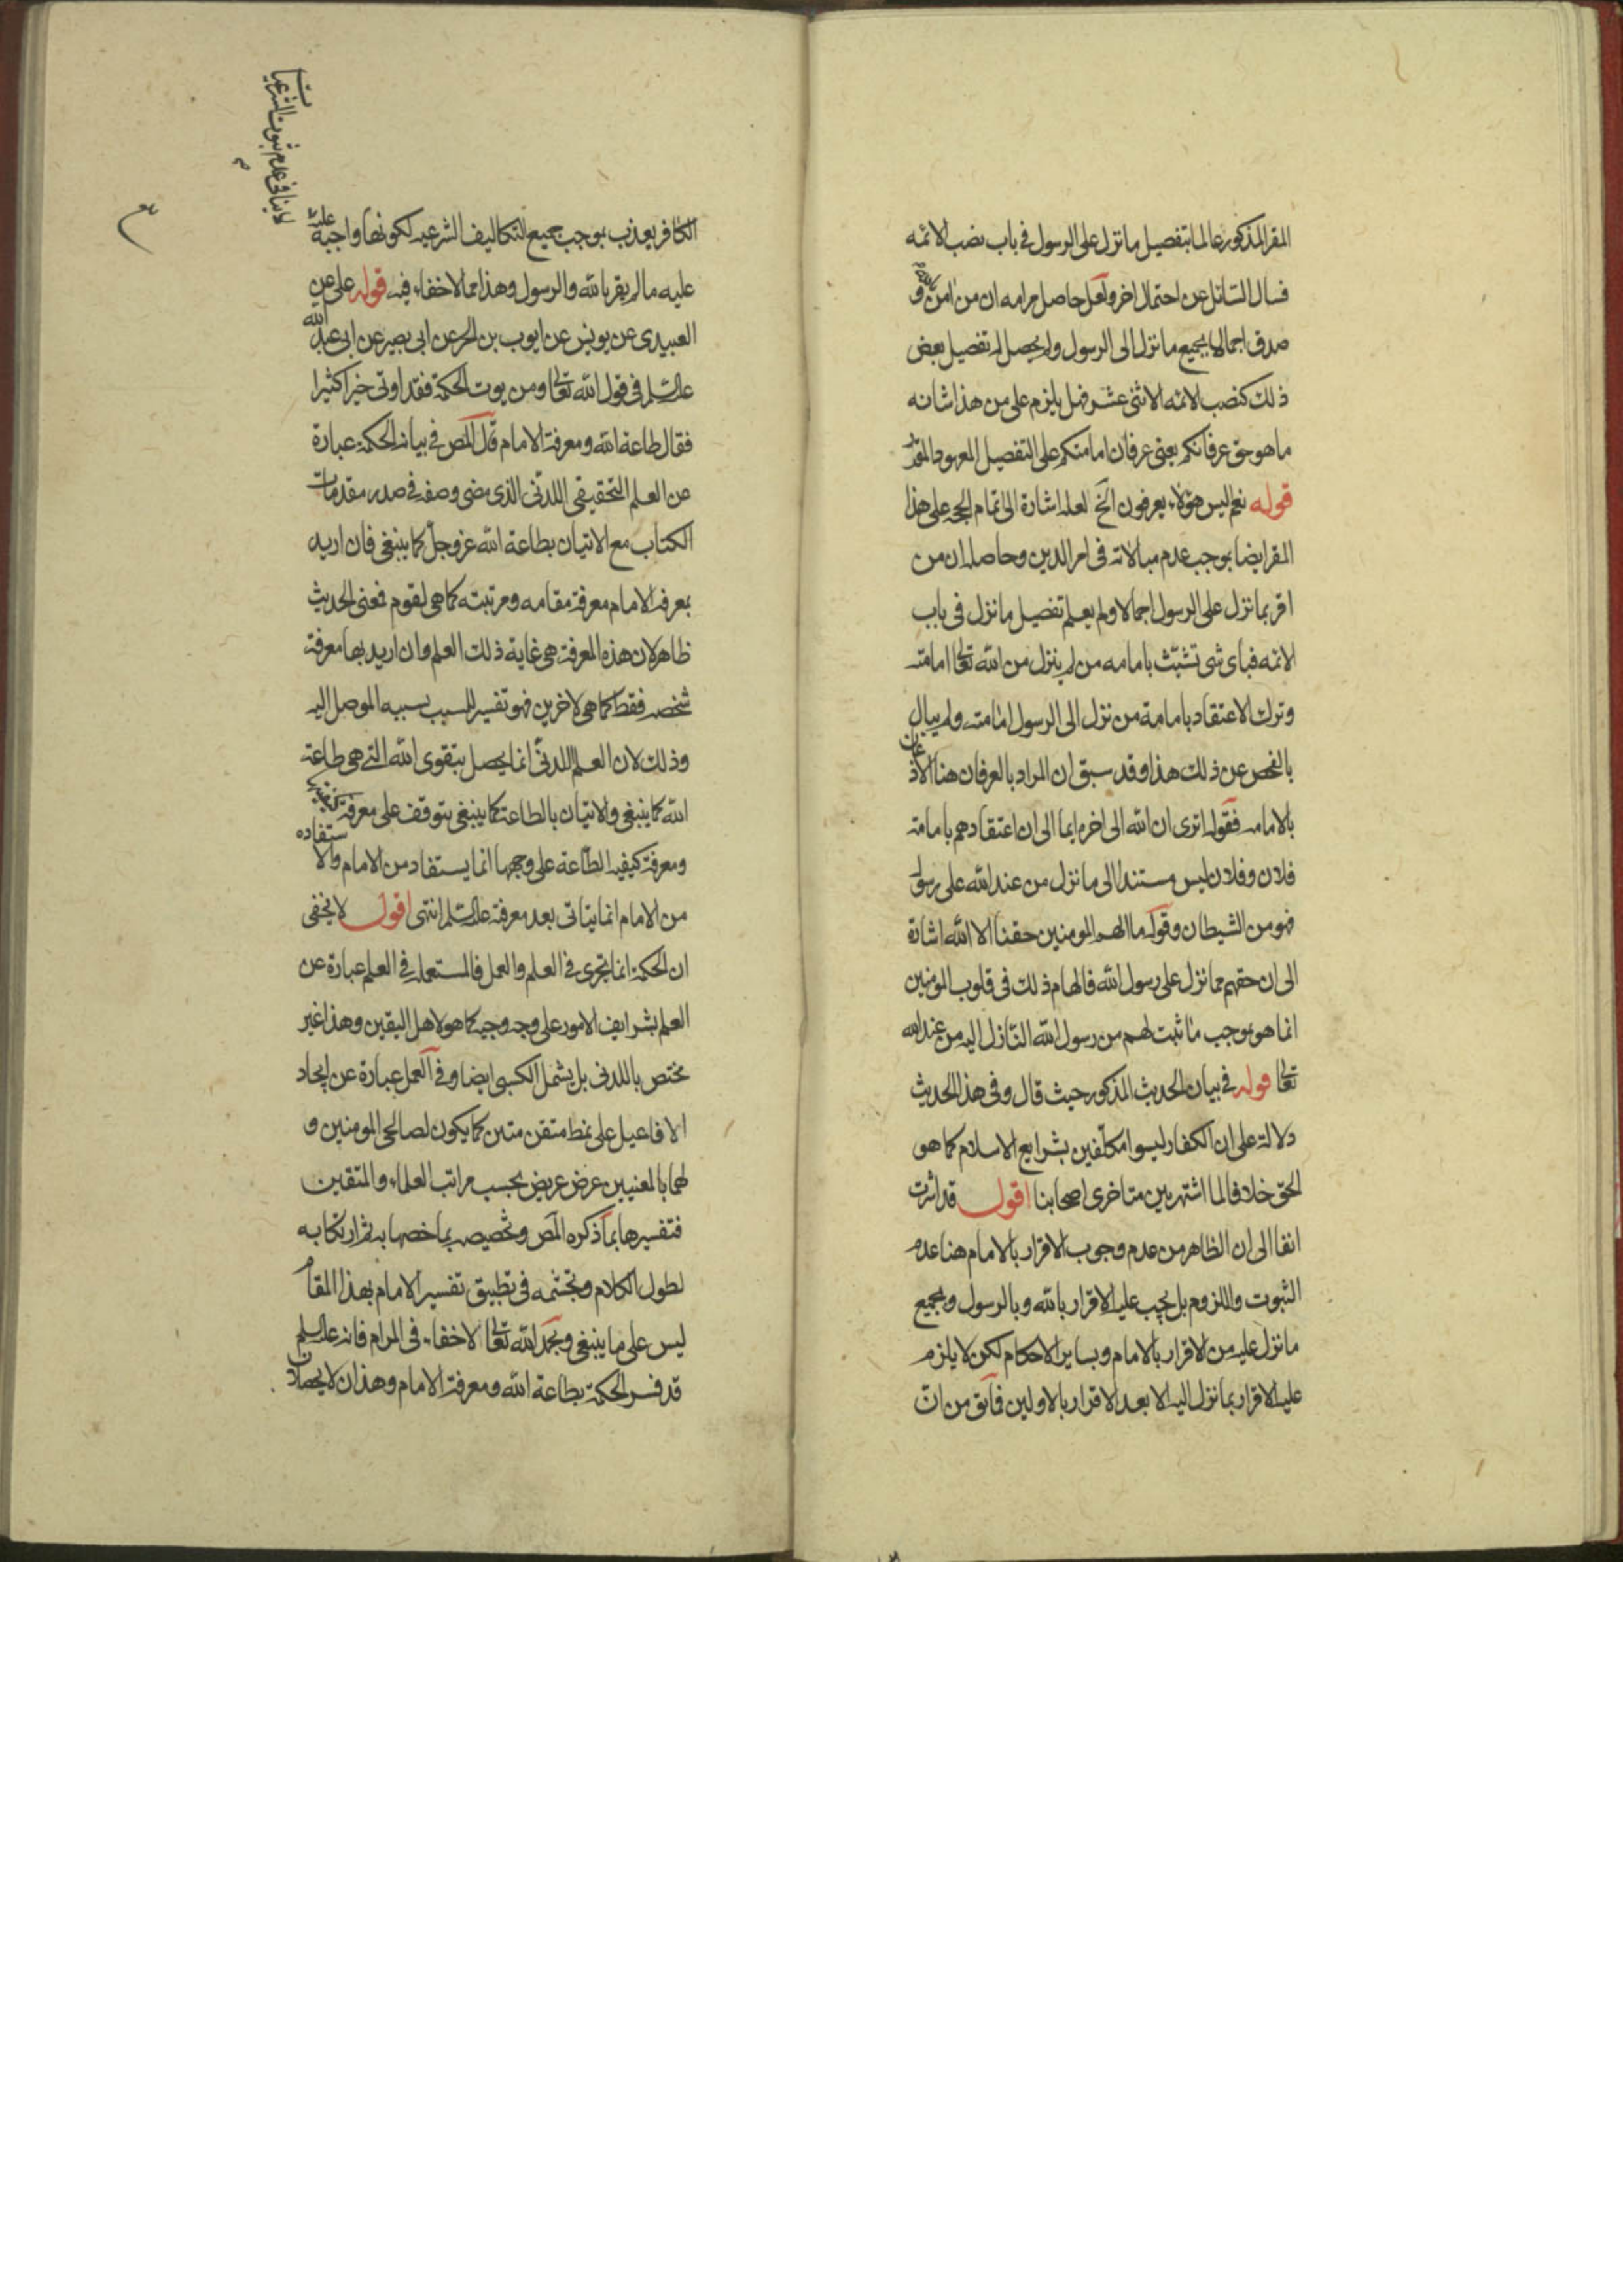 المقر المذكور عالما بتفصيل ما نزل على الرسول في باب نصب الائمه
فسال السائل عن احتمال اخر ولعل حاصل مرامه ان من امن و
صدق اجمالا بجميع ما نزل الى الرسول ولم يحصل له تفصيل بعض
ذلك كنصب الائمه الاثنى عشر فهل يلزم على من هذا شانه
ما هو حق عرفانكم يعنى عرفان امامتكم على التفصيل المعهود المقرر
قوله نعم اليس هؤلاء يعرفون الخ لعله اشارة الى اتمام الحجه على هذا
المقر ايضا بوجب عدم مبالاته فى امر الدين وحاصله ان من
اقر بما نزل على الرسول اجمالا ولم يعلم تفصيل ما نزل فى باب
الائمه فباى شى تشبّث بامامه من لم ينزل من الله تعالى امامته
وترك الاعتقاد بامامة من نزل الى الرسول امامته ولم يبال
بالفحص عن ذلك هذا وقد سبق ان المراد بالعرفان هنا الاذعان
بالامامه فقوله اترى ان الله الى اخره ايما الى ان اعتقادهم بامامة
فلان وفلان ليس مستندا الى ما نزل من عند الله على رسوله
فهو من الشيطان وقوله ما الهم المومنين حقنا الا الله اشارة
الى ان حقهم مما نزل على رسول الله فالهام ذلك فى قلوب المومنين
انما هو بموجب ما ثبت لهم من رسول الله النازل اليه من عند الله
تعالى قوله فى بيان الحديث المذكور حيث قال وفى هذا الحديث
دلالة على ان الكفار ليسوا مكلّفين بشرايع الاسلام كما هو
الحق خلافا لما اشتهر بين متاخرى اصحابنا اقول قد اشرت
انفا الى ان الظاهر من عدم وجوب الاقرار بالامام هنا عدم
الثبوت واللزوم بل يجب عليه الاقرار بالله وبالرسول وبجميع
ما نزل عليه من الاقرار بالامام وبساير الاحكام لكن لا يلزم
عليه الاقرار بما نزل اليه الا بعد الاقرار بالاولين فما تق من ان
الكافر يعذب بموجب جميع التكاليف الشرعيه لكونها واجبة عليه
لا ينافى عدم ثبوت الشرعيات
عليه ما لم يقر بالله والرسول وهذا مما لا خفاء فيه قوله على عن
العبيدى عن يونس عن ايوب بن الحر عن ابى بصير عن ابى عبد الله
عليه السلم فى قول الله تعالى ومن يوت الحكمة فقد اوتى خيرا كثيرا
فقال طاعة الله ومعرفة الامام قال المص فى بيانه الحكمة عبارة
عن العلم التحقيقى اللدنّى الذى مضى وصفه فى صدر مقدمات
الكتاب مع الاتيان بطاعة الله عز وجل كما ينبغى فان اريد
بمعرفة الامام معرفة مقامه ومرتبته كما هى لقوم فمعنى الحديث
ظاهر لان هذه المعرفة هى غاية ذلك العلم وان اريد بها معرفة
شخصه فقط كما هى لاخرين فهو تفسير للسبب بسببه الموصل اليه
وذلك لان العلم اللدنّى انما يحصل بتقوى الله التى هى طاعة
الله كما ينبغى والاتيان بالطاعة كما ينبغى يتوقف على معرفة
ومعرفة كيفيه الطاعة على وجهها انما يستفاد من الامام والاستفاده
من الامام انما يتاتى بعد معرفة عليه السلم انتهى اقول لا يخفى
ان الحكمة انما تجرى فى العلم والعمل فالمستعمله فى العلم عبارة عن
العلم بشرايف الامور على وجه وجيه كما هو لاهل اليقين وهذا غير
مختص باللدنى بل يشمل الكسبى ايضا وفى العمل عبارة عن ايجاد
الافاعيل على نمط متقن متين كما يكون لصالحى المومنين و
لهما بالمعنيين عرض عريض بحسب مراتب العلماء والمتقين
فتفسيرها بما ذكره المص وتخصيصه بما خصها به ثم ارتكابه
لطول الكلام وتجشمه فى تطبيق تفسير الامام بهذا المقام
ليس على ما ينبغى وبحمد الله تعالى لا خفاء فى المرام فانه عليه السلم
قد فسر الحكمة بطاعة الله ومعرفة الامام وهذان لا يحصلان